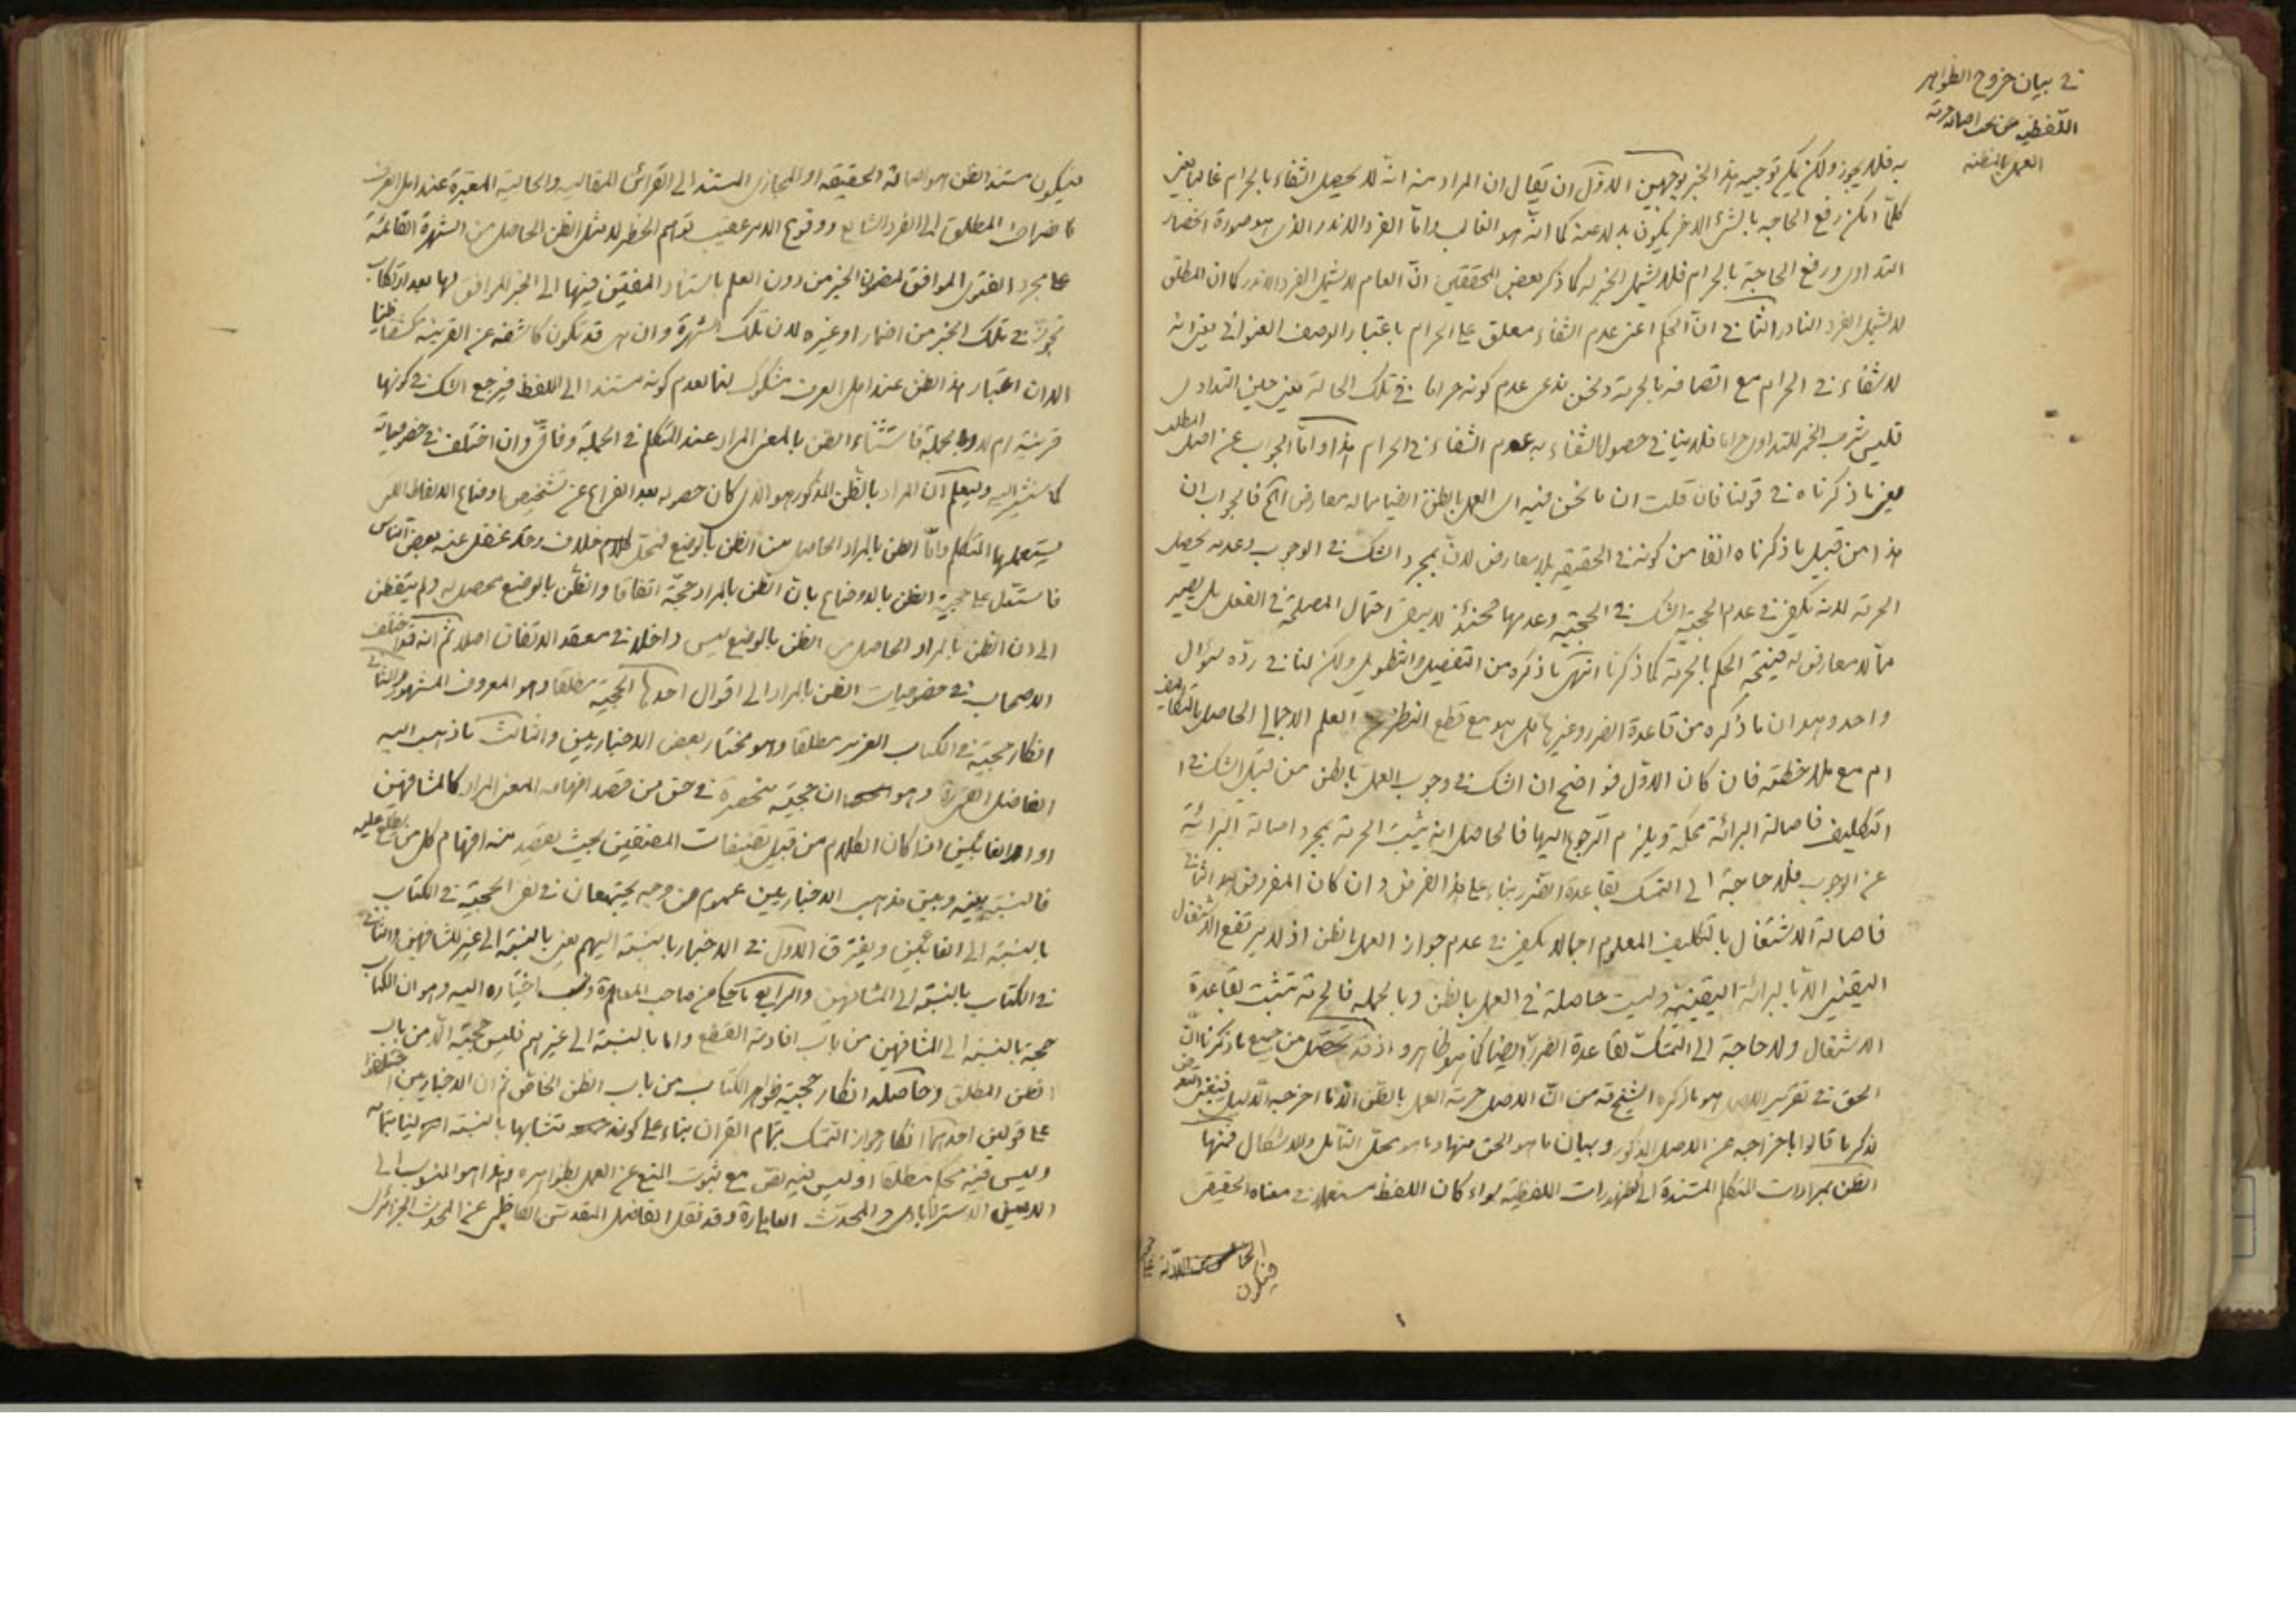 في بيان خروج الظواهر
اللفظيه عن تحت اصالة حرمة
العمل بالمظنه
به فلا يجوز ولكن يمكن توجيه هذا الخبر بوجهين الاوّل ان يقال ان المراد منه انه لا يحصل الشفاء بالحرام غالبا يعني
كلّما امكن رفع الحاجه بالشئ الاخر يكون بدلا عنه كما انه هو الغالب وامّا الفرد النادر الذي هو صورة انحصار
التداوى ورفع الحاجة بالحرام فلا يشمل الخبر له كما ذكر بعض المحققين انّ العام لا يشمل الفرد النادر كما ان المطلق
لا يشمل الفرد النادر الثاني انّ الحكم اعني عدم الشفاء معلق على الحرام باعتبار الوصف العنواني يعني انه
لا شفاء في الحرام مع اتصافه بالحرمة ونحن ندعى عدم كونه حراما في تلك الحالة يعني حين التداوى
فليس شرب الخمر للتداوى حراما فلا ينافي حصول الشفاء به عدم الشفاء في الحرام هذا وامّا الجواب عن اصل المطلب
يعني ما ذكرناه في قولنا فان قلت ان ما نحن فيه اى العمل بالظن ايضا مما له معارض الخ فالجواب ان
هذا من قبيل ما ذكرناه انفا من كونه في الحقيقه بلا معارض لانّ بمجرد الشك في الوجوب وعدمه يحصل
الحرمة لانه يكفي في عدم الحجية الشك في الحجيّة وعدمها فحينئذ لا يبقى احتمال المصلحة في الفعل بل يصير
ممّا لا معارض له فينتج الحكم بالحرمة كما ذكرنا انتهى ما ذكره من التفصيل والتطويل ولكن لنا في ردّه سؤال
واحد وهو ان ما ذكره من قاعدة الضرر وغيرها هل هو مع قطع النظر عن العلم الاجمالي الحاصل بالتكاليف
ام مع ملاحظته فان كان الاوّل فواضح ان الشك في وجوب العمل بالظن من قبيل الشك في
التكليف فاصالة البرائة محكمة ويلزم الرجوع اليها فالحاصل انه يثبت الحرمة بمجرد اصالة البرائة
عن الوجوب فلا حاجة الى التمسك بقاعدة الضرر بناء على هذا الفرض وان كان المفروض هو الثاني
فاصالة الاشتغال بالتكليف المعلوم اجمالا يكفي في عدم جواز العمل بالظن اذ لا يرتفع الاشتغال
اليقيني الا بالبرائة اليقينية وليست حاصلة في العمل بالظن وبالجمله فالحرمة تثبت بقاعدة
الاشتغال ولا حاجة الى التمسك بقاعدة الضرر ايضا كما هو ظاهر واذ قد تحصّل من جميع ما ذكرنا انّ
الحق في تقرير الاصل هو ما ذكره الشيخ قه من انّ الاصل حرمة العمل بالظن الّا ما اخرجه الدليل فينبغي التعرض
لذكر ما قالوا باخراجه عن الاصل المذكور وبيان ما هو الحق منها وما هو محلّ التأمّل والاشكال فمنها
الظن بمرادات المتكلم المستندة الى الظهورات اللفظيه سواء كان اللفظ مستعملا في معناه الحقيقى
فيكون
فيكون مستند الظن هو اصالة الحقيقه او المجازى المستند الى القرائن المقاليه والحالية المعتبرة عند اهل العرف
كانصراف المطلق الى الفرد الشايع ووقوع الامر عقيب توهم الحظر لا مثل الظن الحاصل من الشهرة القائمة
على مجرد الفتوى الموافق لمضمون الخبر من دون العلم باستناد المفتين فيها الى الخبر الموافق لها بعد ارتكاب
تجوّز في تلك الخبر من اضمار او غيره لان تلك الشهرة وان هى قد تكون كاشفه عن القرينه كشفا ظنيا
الا ان اعتبار هذا الظن عند اهل العرف مشكوك لنا بعدم كونه مستندا الى اللفظ فيرجع الشك في كونها
قرينة ام لا وبالجملة فاستثناء الظن بالمعنى المراد عند المتكلم في الجملة وفاقىّ وان اختلف في خصوصياته
كما سنشير اليه وليعلم انّ المراد بالظن المذكور هو الذى كان حصوله بعد الفراغ عن تشخيص اوضاع الالفاظ التى
يستعملها المتكلم وامّا الظن بالمراد الحاصل من الظن بالوضع فمحلّ كلام خلاف وقد غفل عنه بعض الناس
فاستدل على حجية الظن بالاوضاع بان الظن بالمراد حجّة اتفاقا والظن بالوضع محصل له ولم يتفطن
الى ان الظن بالمراد الحاصل من الظن بالوضع ليس داخلا في معقد الاتفاق اصلا ثم انه قد اختلف
الاصحاب في خصوصيات الظن بالمراد الى اقوال احدها الحجية مطلقا وهو المعروف المشهور والثاني
انكار حجيته في الكتاب العزيز مطلقا وهو مختار بعض الاخباريين والثالث ما ذهب اليه
الفاضل القمى ره وهو ان حجيته منحصرة في حق من قصد افهامه المعنى المراد كالمشافهين
او الغائبين اذا كان الكلام من قبيل تصنيفات المصنفين بحيث يقصد منه افهام كل من يطلع عليه
فالنسبة بينه وبين مذهب الاخباريين عموم من وجه يجتمعان في نفى الحجية في الكتاب
بالنسبة الى الغائبين ويفترق الاوّل في الاخبار بالنسبة اليهم يعنى بالنسبة الى غير المشافهين والثاني
في الكتاب بالنسبة الى المشافهين والرابع ما حكى عن صاحب المعالم ره ونسب اختياره اليه وهو ان الكتاب
حجة بالنسبة الى المشافهين من باب افادته القطع واما بالنسبة الى غيرهم فليس حجية الّا من باب
الظن المطلق وحاصله انكار حجية ظواهر الكتاب من باب الظن الخاص ثم ان الاخباريين اختلفوا
على قولين احدهما انكار جواز التمسك بتمام القران بناء على كونه متشابها بالنسبة الينا بتمامه
وليس فيه محكم مطلقا او ليس فيه نص مع ثبوت المنع عن العمل بظواهره وهذا هو المنسوب الى
الامين الاسترابادى والمحدث وقد نقل الفاضل المقدس الكاظمى عن المحدث الجزائرى